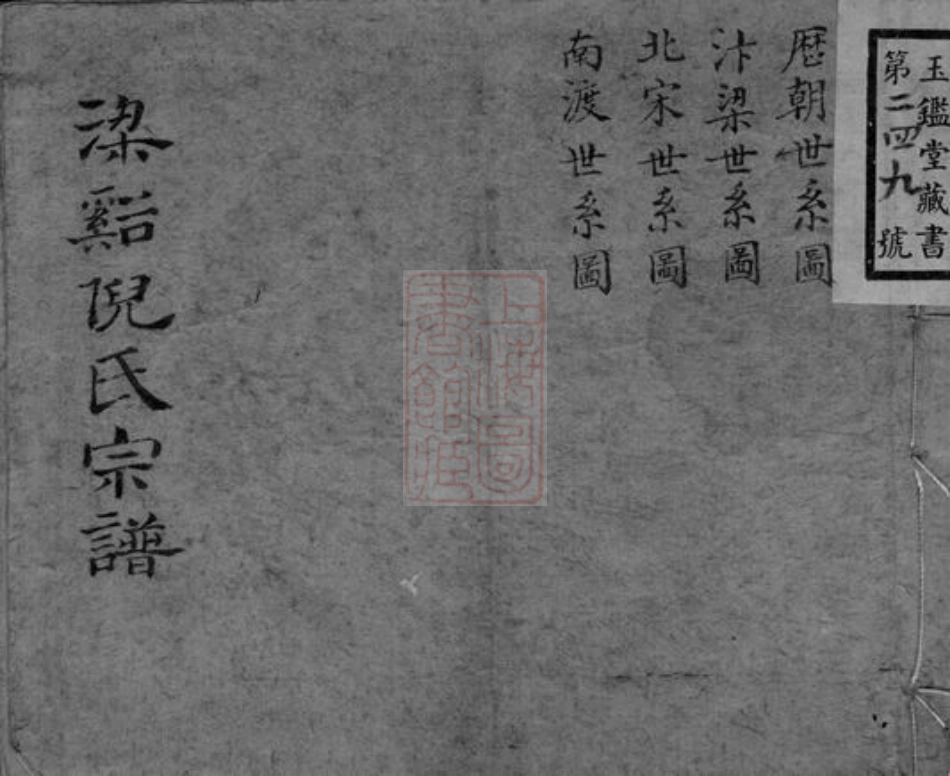 玉鑑堂藏書
第二四九號
歷朝世系圖
汴梁世系圖
北宋世系圖
南渡世系圖
上海圖
書館藏
梁谿倪氏宗譜